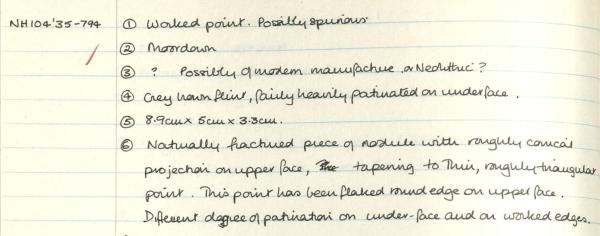 NH104'35-794 ① Worked point. Possibly spurious.
② Moordown
③ ? Possibly of modern manufacture or Neolithic?
④ Grey brown flint, fairly heavily patinated on underface.
⑤ 8.9cm x 5cm x 3.3cm.
⑥ Naturally fractured piece of nodule with roughly conical
projection on upper face, tapering to thin, roughly-triangular
point. This point has been flaked round edge on upper face.
Different degree of patination on under-face and on worked edges.